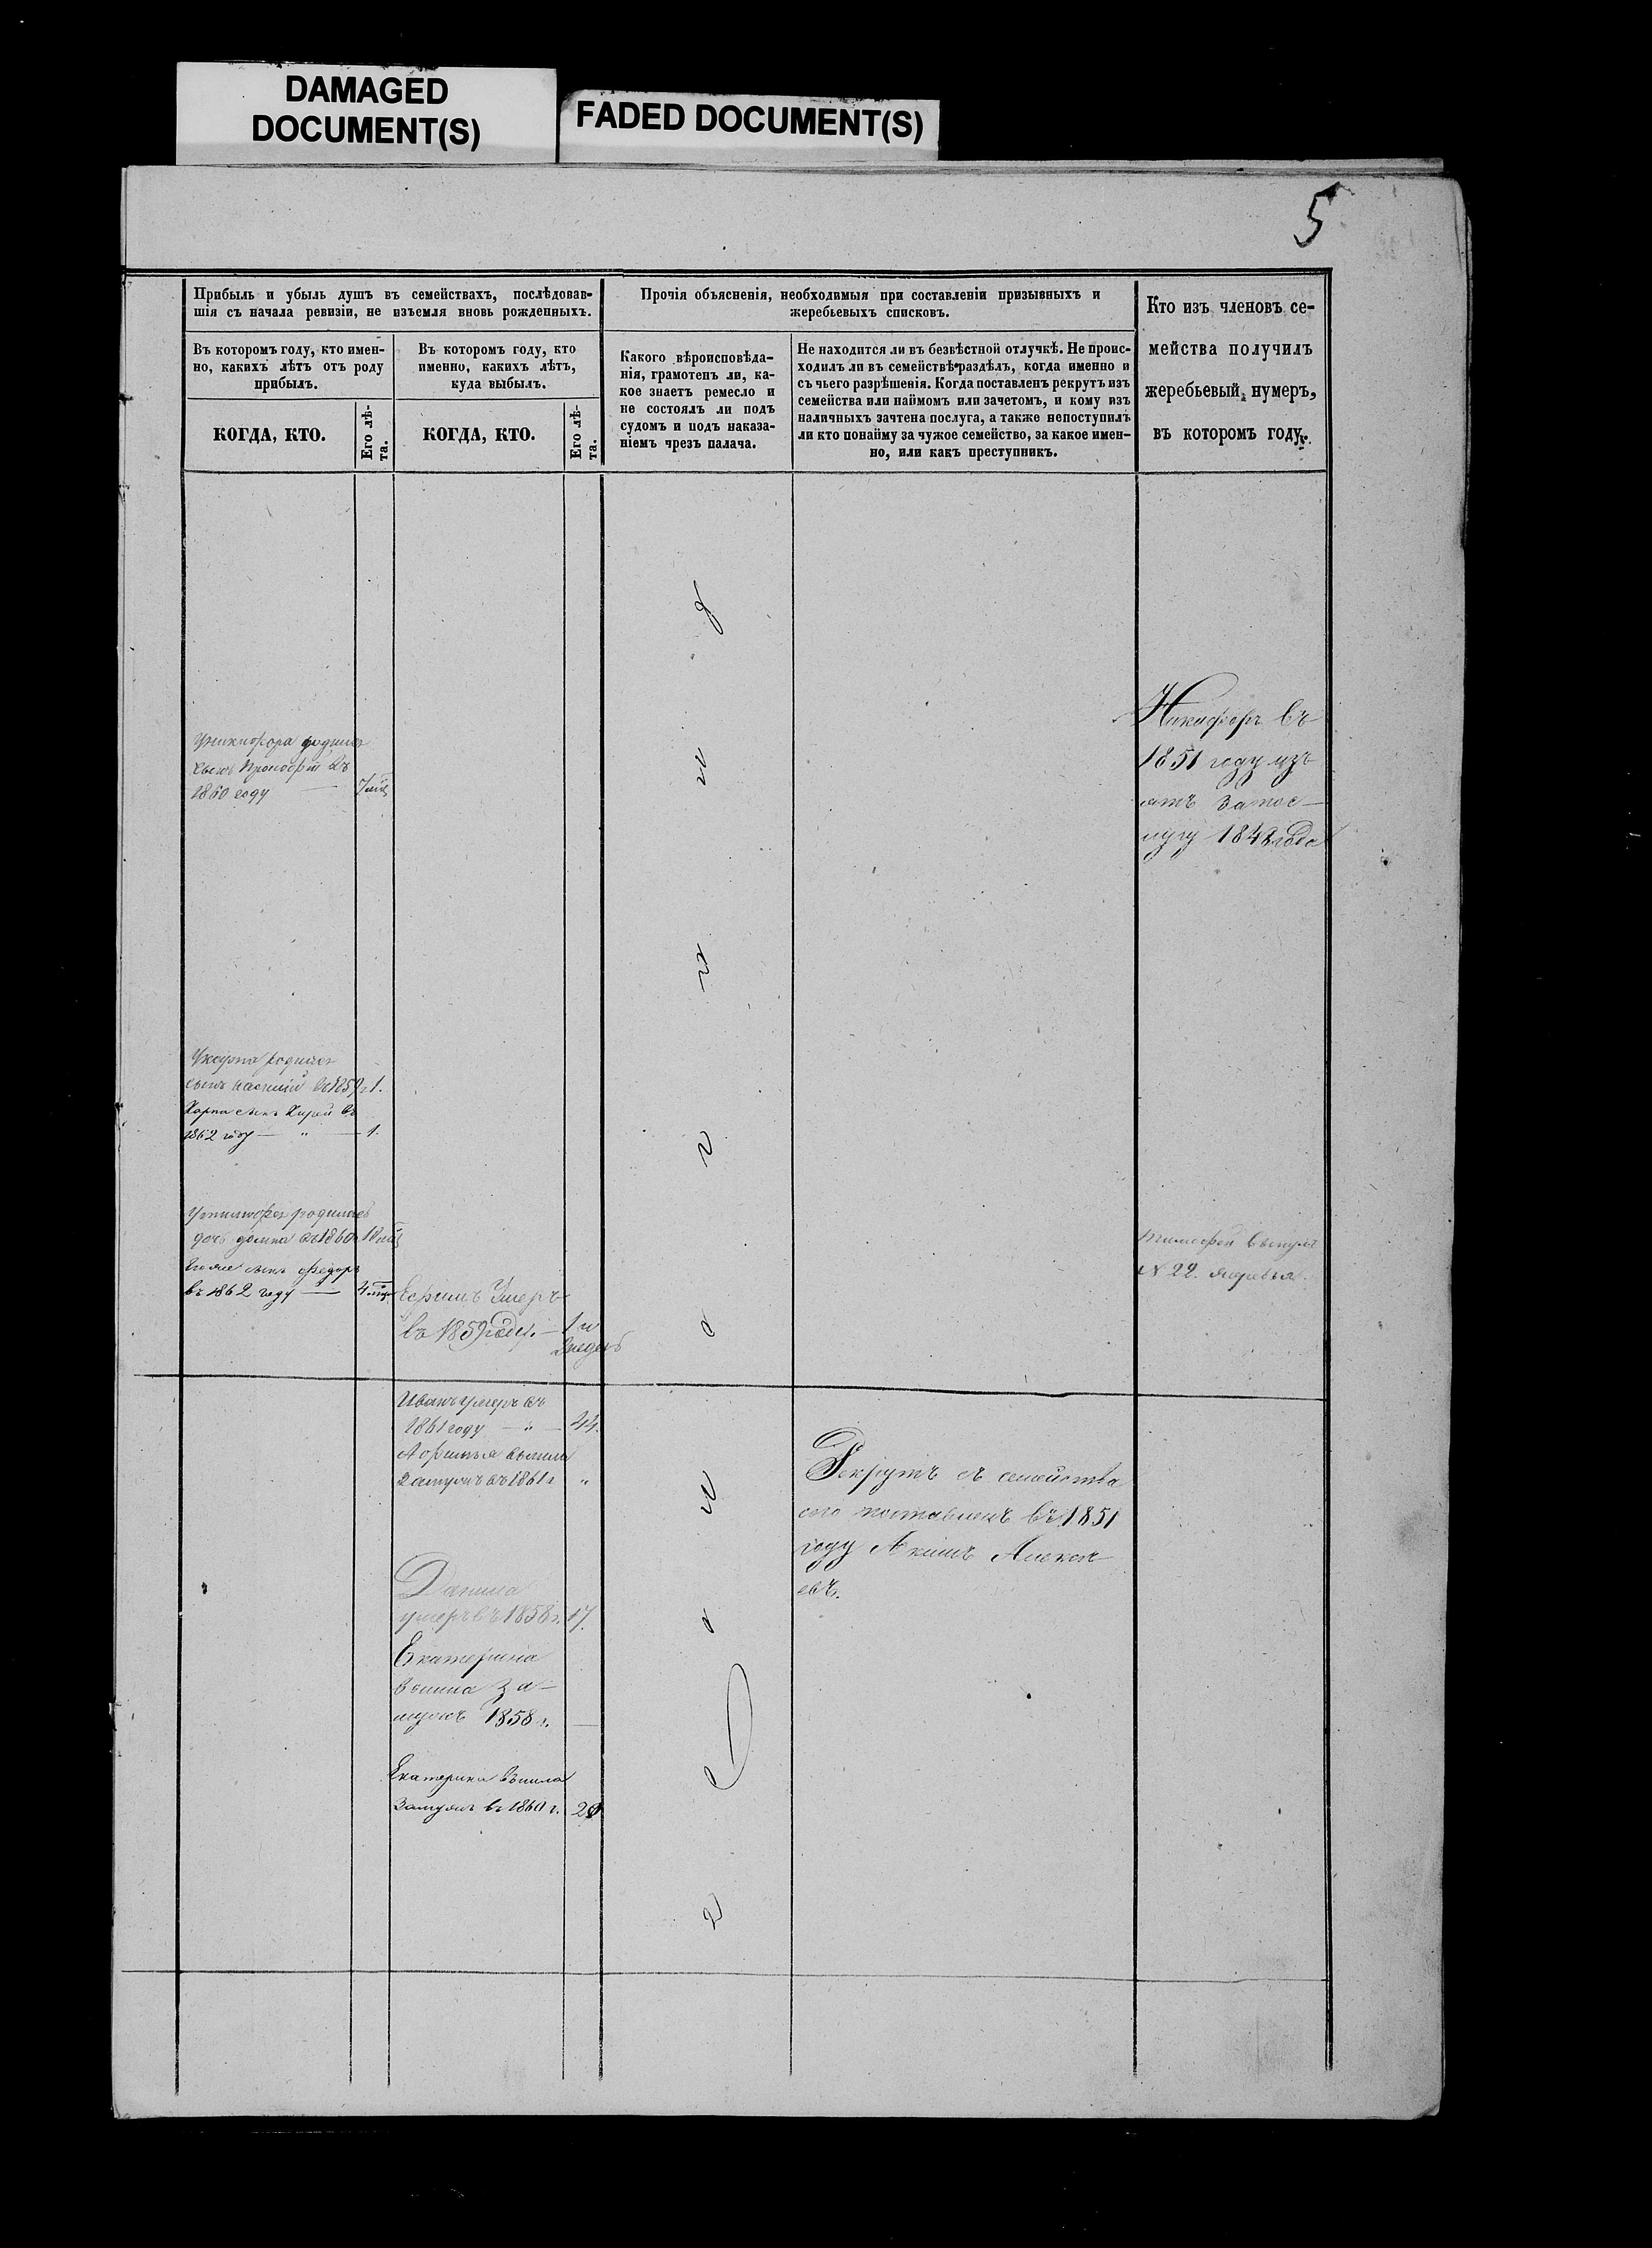 DAMAGED
DOCUMENT(S)
FADED DOCUMENT(S)
5
Прибыль и убыль душъ въ семействахъ, послѣдовав-
шія съ начала ревизіи, не изъемля вновь рожденныхъ.
Въ которомъ году, кто имен-
но, какихъ лѣтъ отъ роду
прибылъ.
КОГДА, КТО.
Его лѣ-
та.
Въ которомъ году, кто
именно, какихъ лѣтъ,
куда выбылъ.
КОГДА, КТО.
Его лѣ-
та.
Прочія объясненія, необходимыя при составленіи призывныхъ и
жеребьевыхъ списковъ.
Какого вѣроисповѣда-
нія, грамотенъ ли, ка-
кое знаетъ ремесло и
не состоялъ ли подъ
судомъ и подъ наказа-
ніемъ чрезъ палача.
Не находится ли въ безвѣстной отлучкѣ. Не проис-
ходилъ ли въ семействѣ раздѣлъ, когда именно и
съ чьего разрѣшенія. Когда поставленъ рекрутъ изъ
семейства или наймомъ или зачетомъ, и кому изъ
наличныхъ зачтена послуга, а также непоступилъ
ли кто понайму за чужое семейство, за какое имен-
но, или какъ преступникъ.
Кто изъ членовъ се-
мейства получилъ
жеребьевый нумеръ,
въ которомъ году.
Уникифора родился
сынъ въ
1860 году
Никифоръ въ
1851 году изъ
ятъ запос-
лугу 1842 года
родился
сынъ въ 1859 г 1.
Карпа сынъ въ
1862 году — " — 1.
родилась
дочь домна въ 1860 г
сынъ федоръ
въ 1862 году —
Тимофей
№ 22. жеребья.
Ефимъ Умеръ
въ 1859 году. — 1 и
Иванъ умеръ въ
1861 году — " — 44.
вышла
Замужъ въ 1861 г "
Рекрутъ съ семейства
сего поставленъ въ 1851
году Акимъ Алексѣ
евъ.
Данила
умеръ въ 1858 г. 17.
Екатерина
вышла за-
мужъ 1858 г. —
Екатерина вышла
Замужъ въ 1860 г. 20